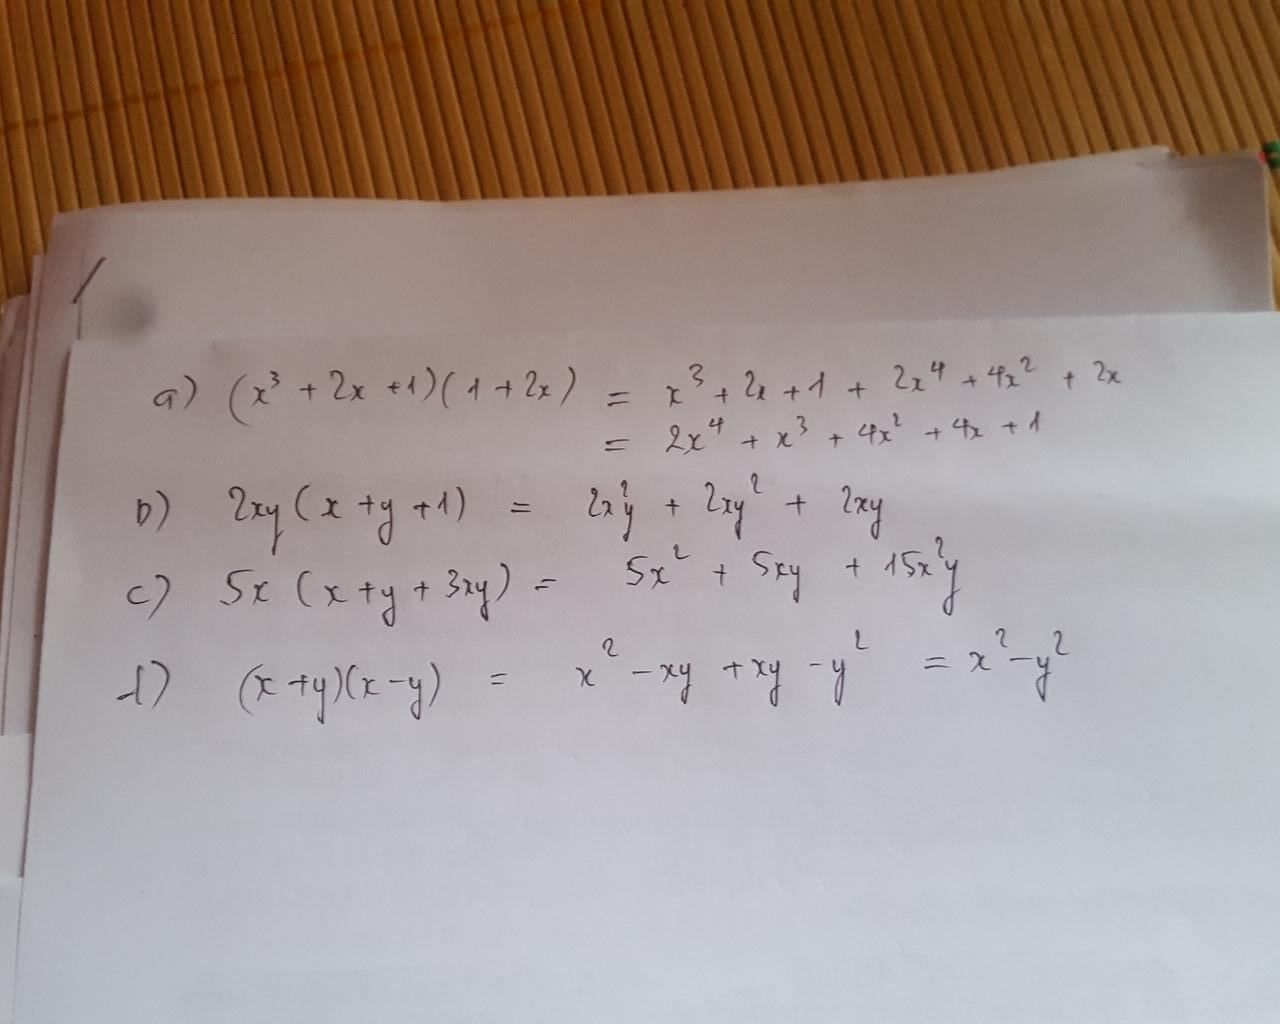 a) (x³ + 2x + 1)(1 + 2x) = x³ + 2x + 1 + 2x⁴ + 4x² + 2x
= 2x⁴ + x³ + 4x² + 4x + 1
b) 2xy(x + y + 1) = 2x²y + 2xy² + 2xy
c) 5x (x + y + 3xy) = 5x² + 5xy + 15x²y
d) (x + y)(x - y) = x² - xy + xy - y² = x² - y²